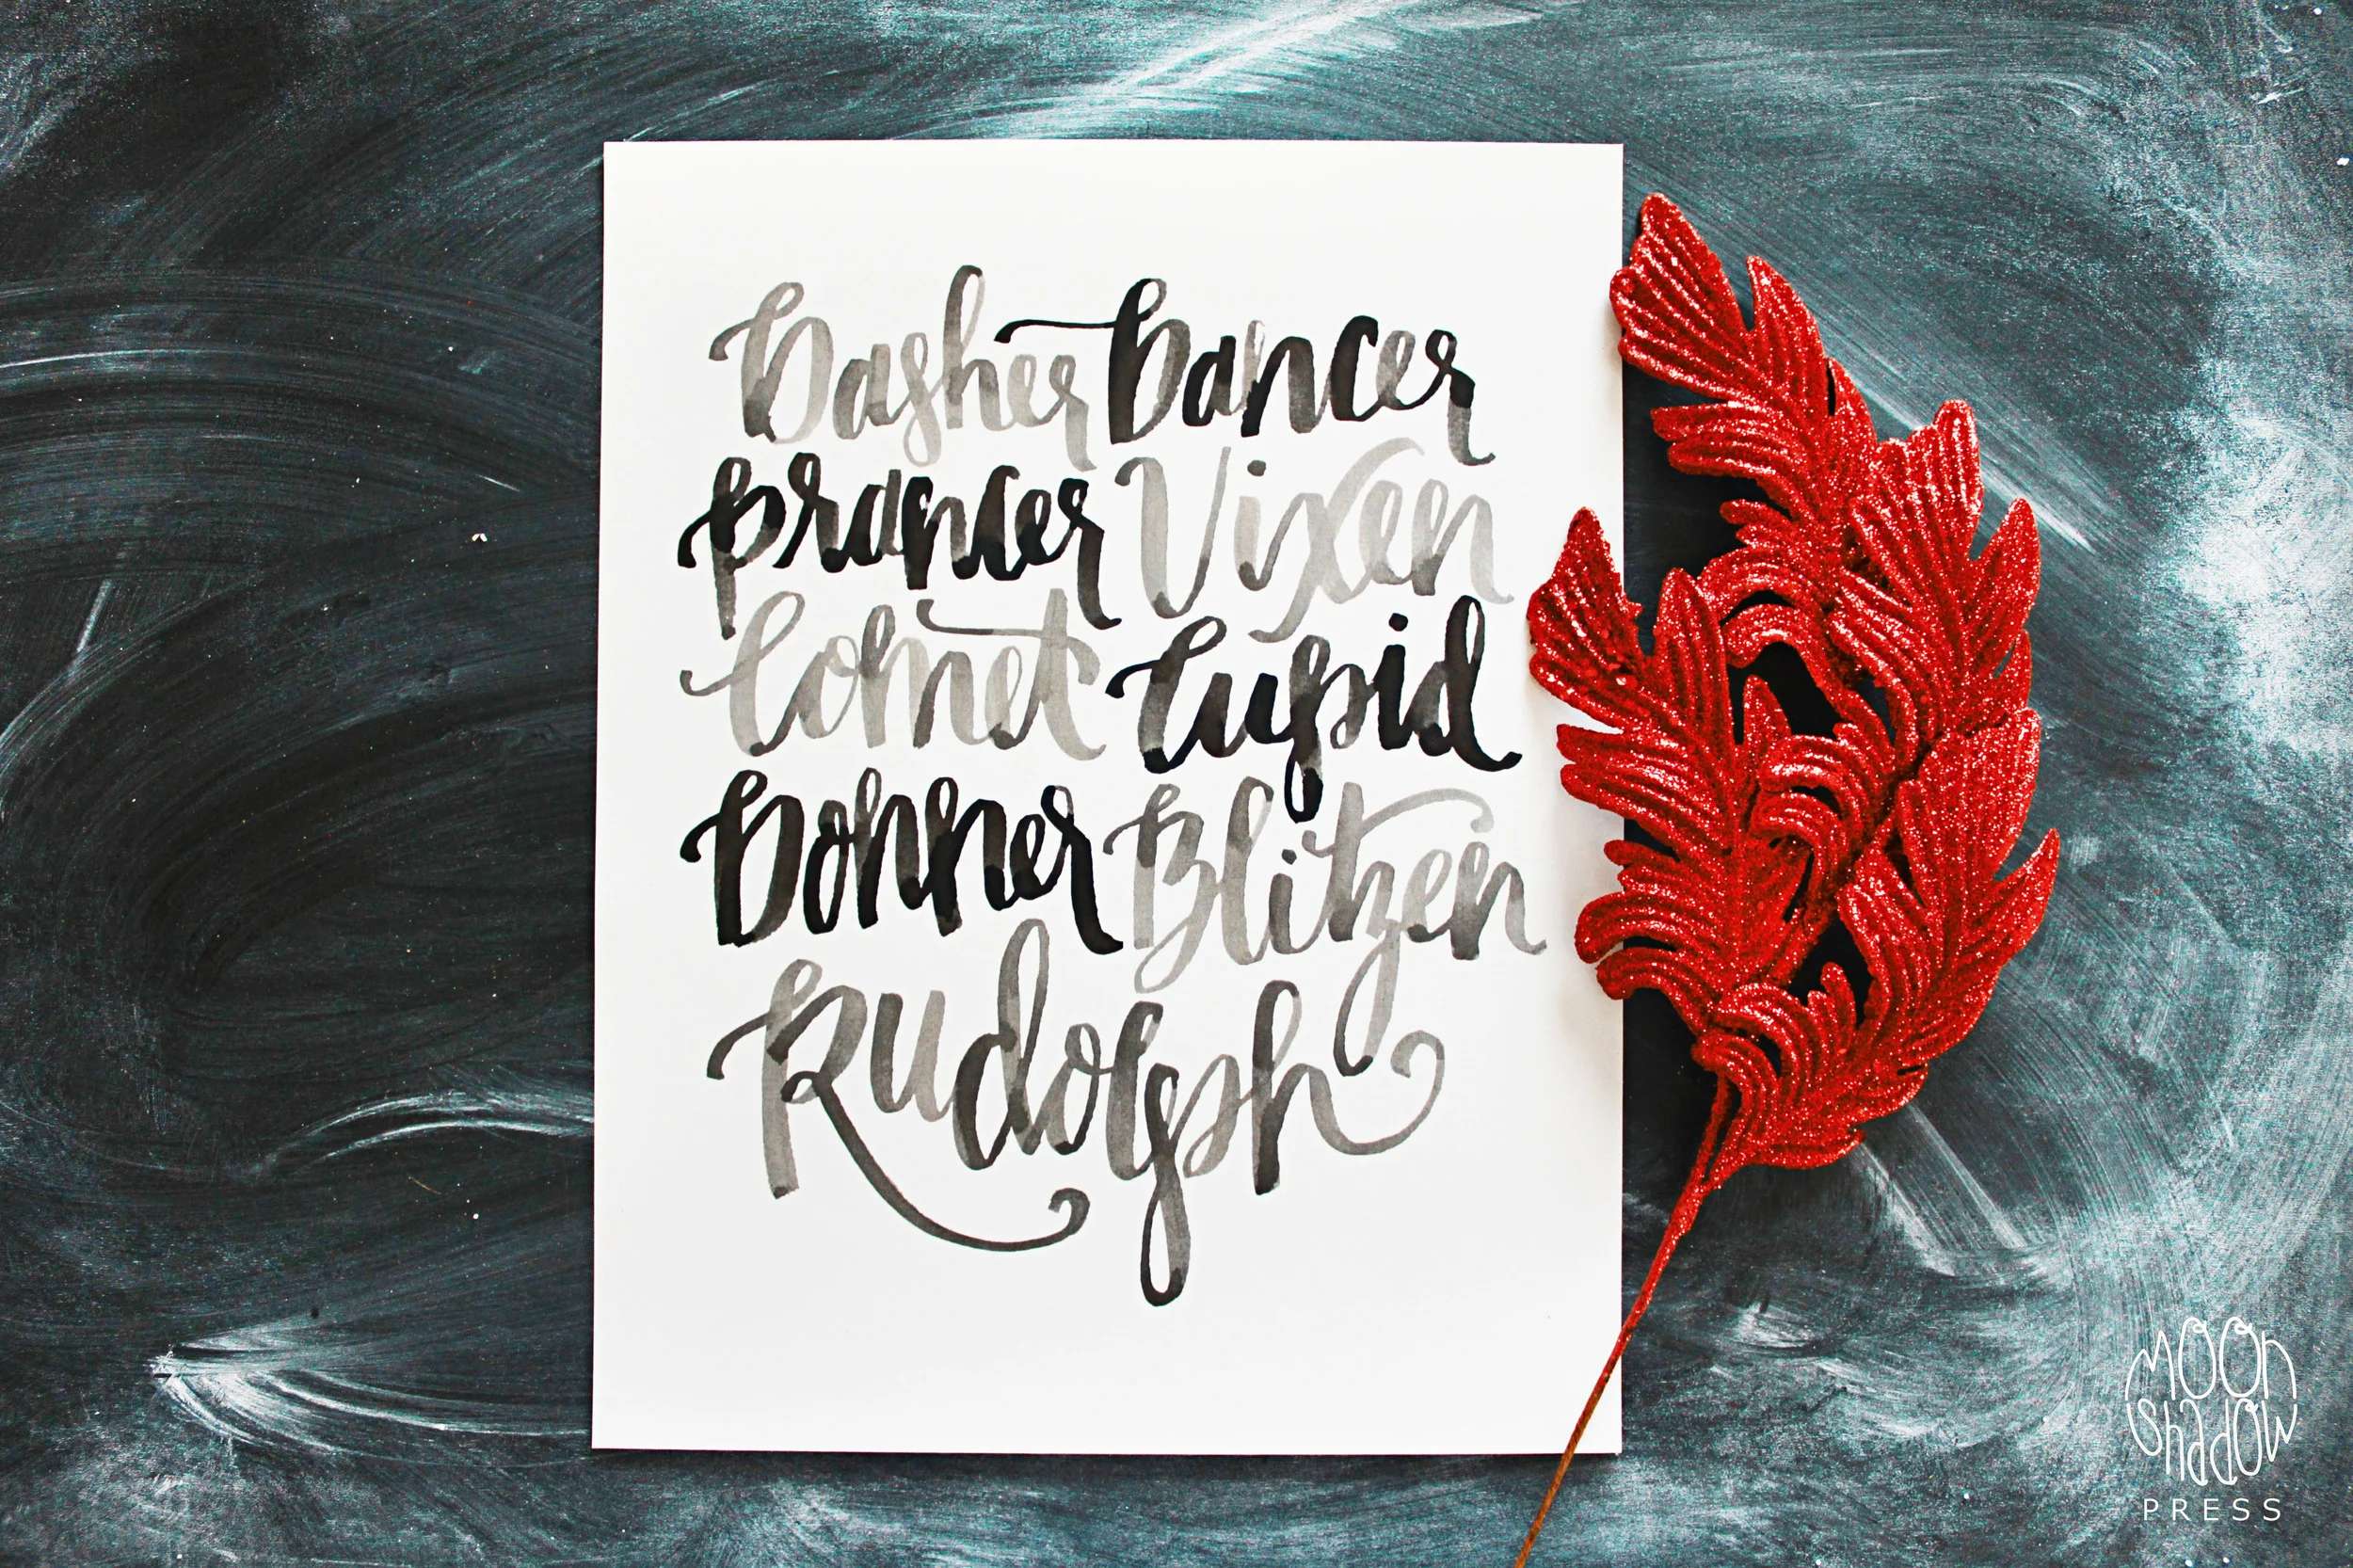 Dasher Dancer
Prancer Vixen
Comet Cupid
Donner Blitzen
Rudolph
MOON
SHADOW
PRESS